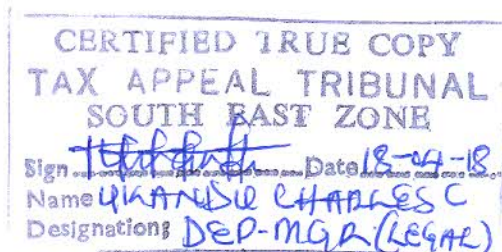 CERTIFIED TRUE COPY
TAX APPEAL TRIBUNAL
SOUTH EAST ZONE
Sign Date 18-04-18
Name UKANDU CHARLES C
Designation: DEP-MGR (LEGAL)